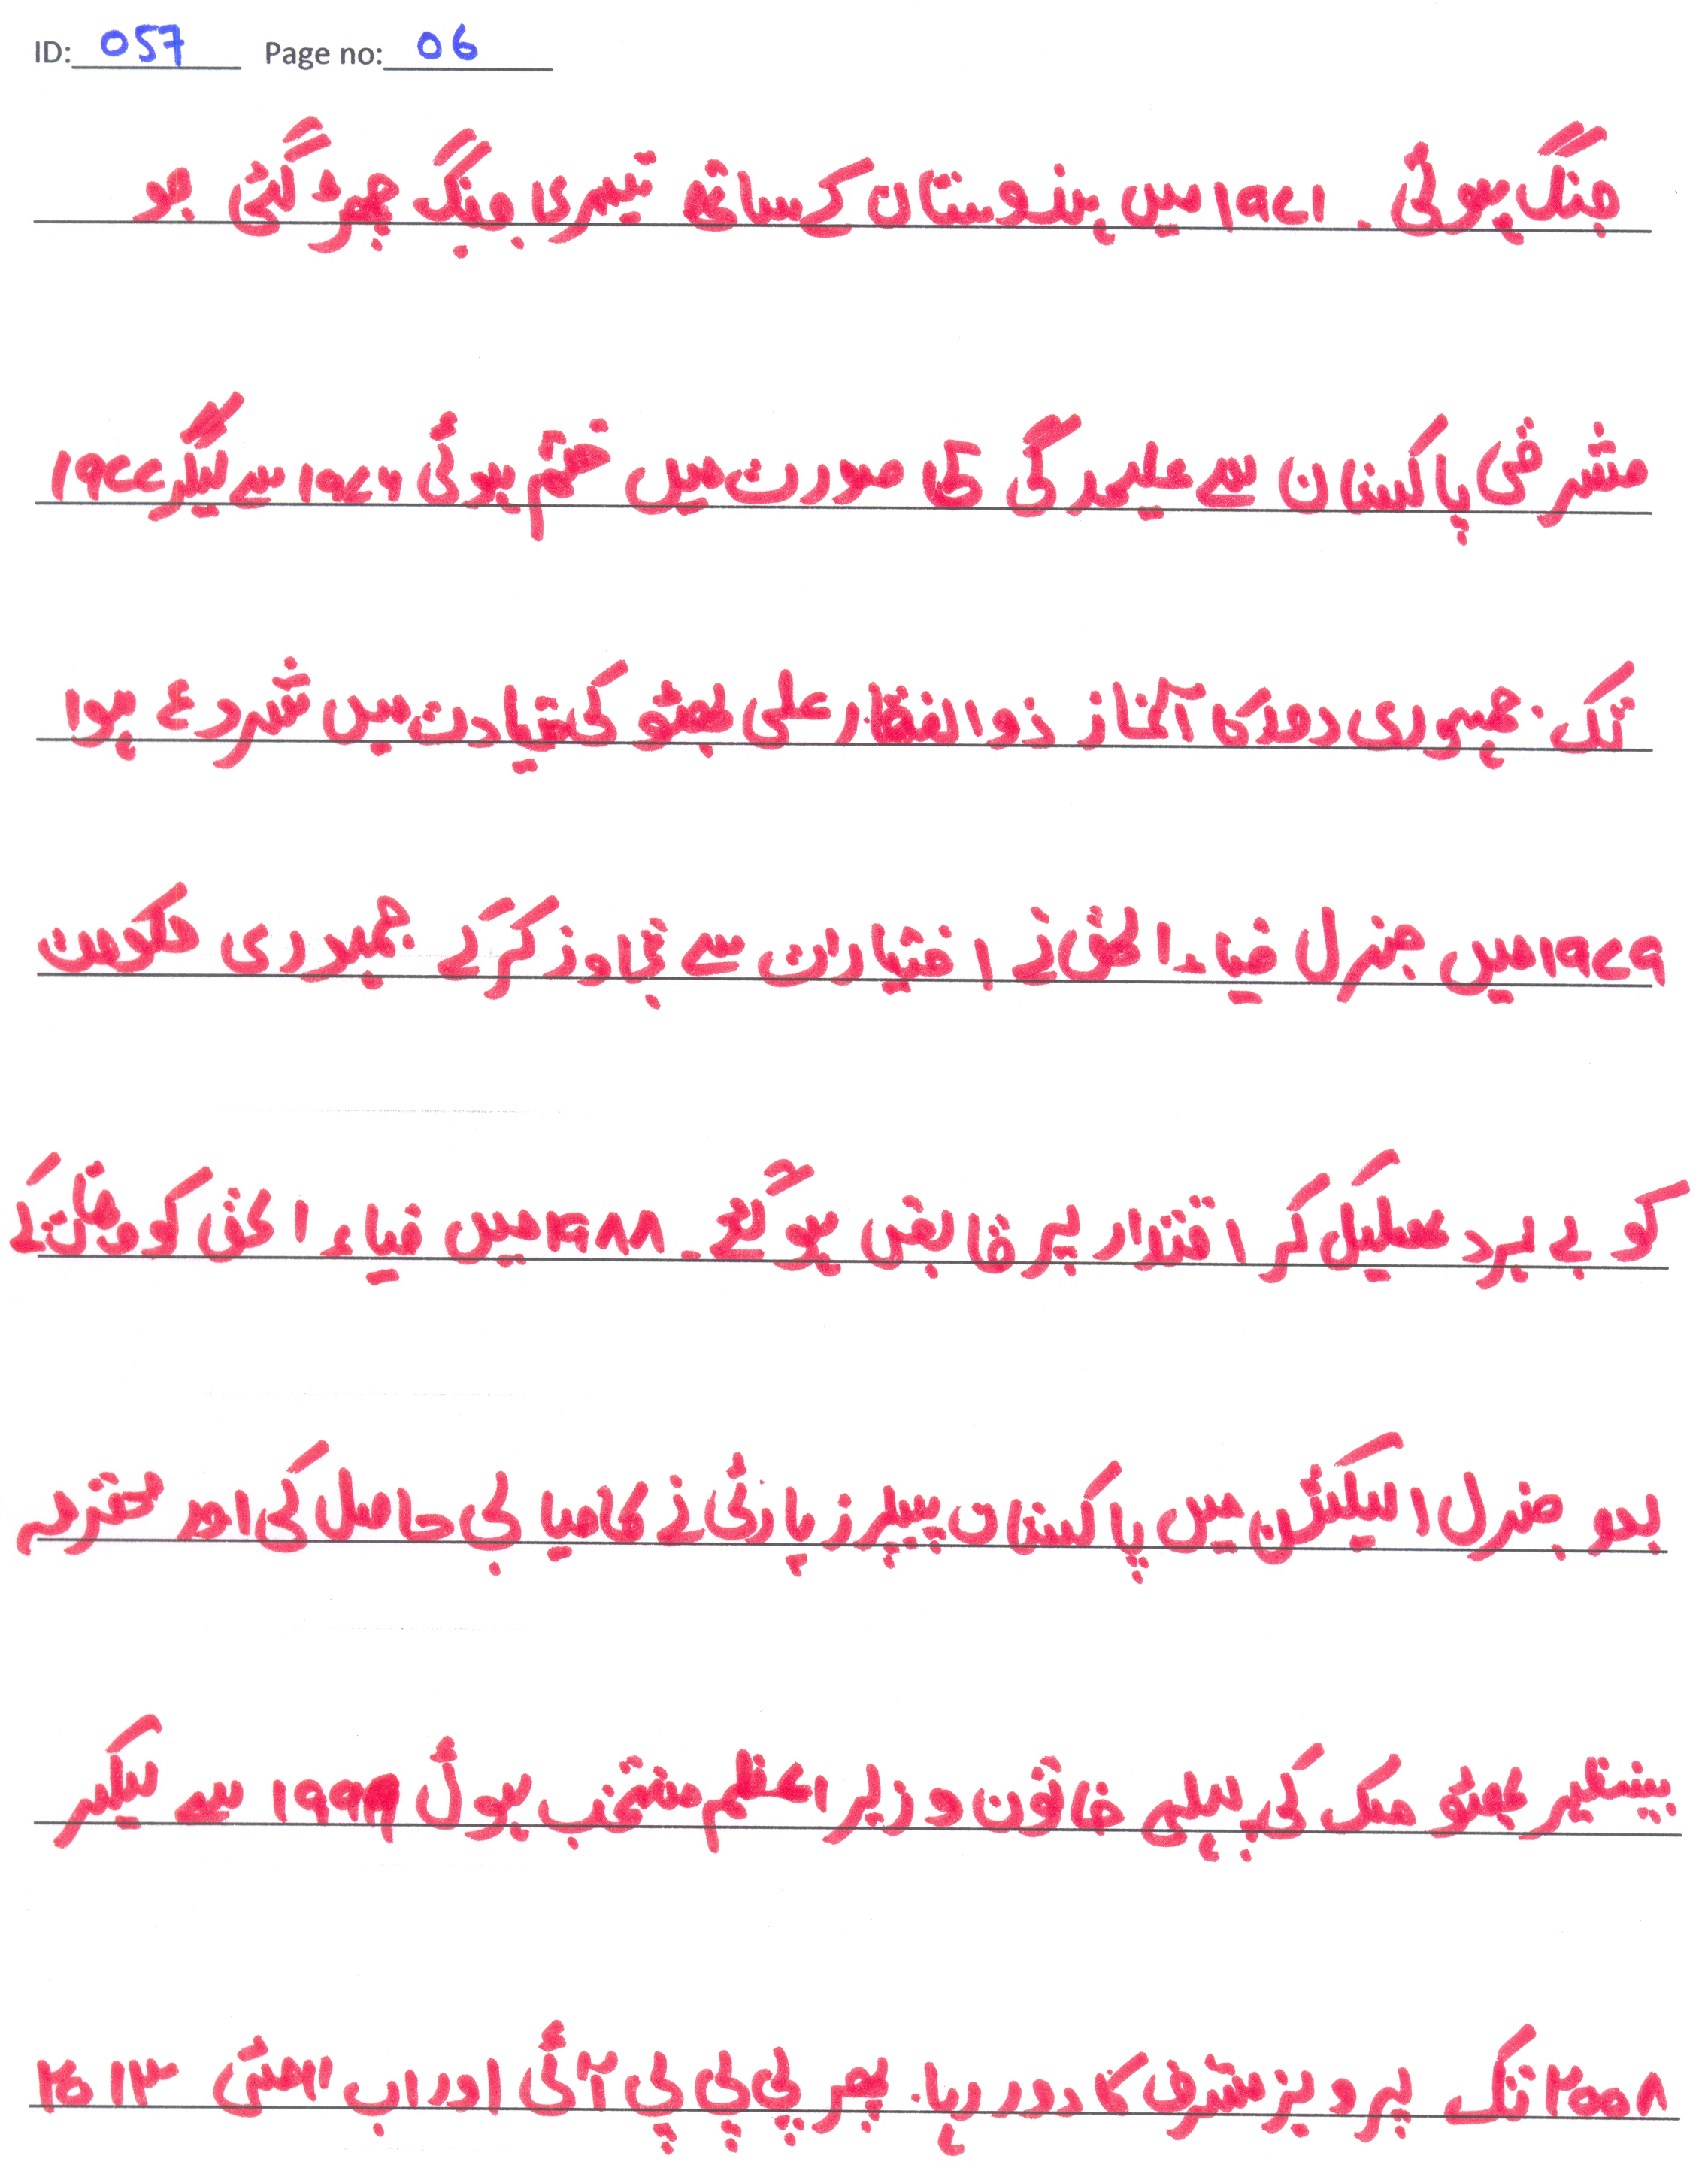 ID: 057 Page no: 06
جنگ ہوئی۔ ۱۹۷۱ میں ہندوستان کے ساتھ تیسری جنگ چھڑ گئی جو
مشرقی پاکستان سے علیحدگی کی صورت میں ختم ہوئی ۱۹۷۲ سے لیکر ۱۹۷۷
تک جمہوری دور کا آغاز ذوالفقار علی بھٹو کی قیادت میں شروع ہوا
۱۹۷۹ میں جنرل ضیاء الحق نے اختیارات سے تجاوز کرکے جمہوری حکومت
کو بے پرد عکلیل کر اقتدار پر قابض ہوگئے۔ ۱۹۸۸ میں ضیاء الحق کو وفات کے
بعد جنرل الیکشن میں پاکستان پیپلرز پارٹی نے کامیابی حاصل کی اور محترمہ
بینظیر بھٹو ملک کی پہلی خاتون وزیر اعظم منتخب ہوئی ۱۹۹۹ سے لیکر
۲۰۰۸ تک پرویز مشرف کا دور رہا۔ پھر پی پی پی آئی اور اب ۱۱ مئی ۲۰۱۳